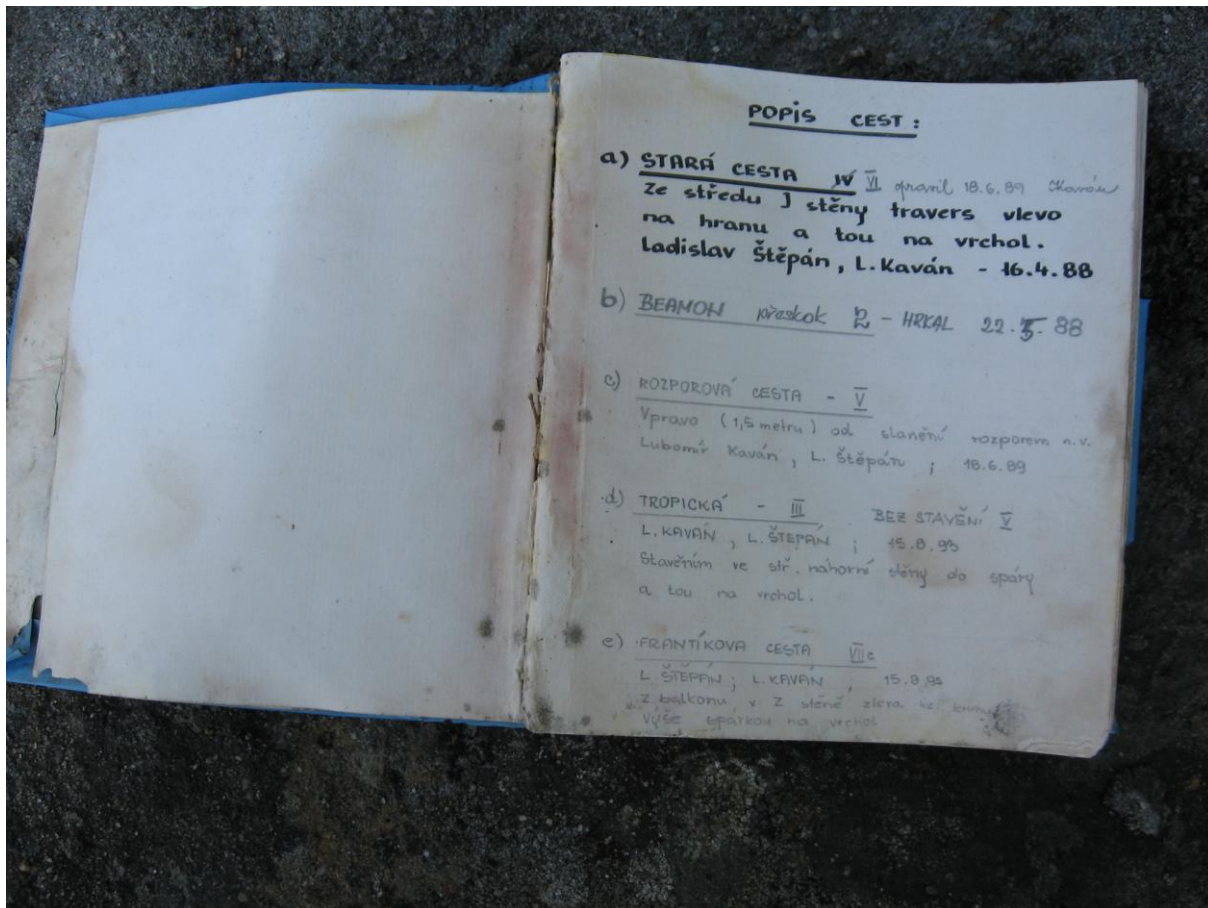 POPIS CEST:
a) STARÁ CESTA IV VI opravil 18.6.89 Kaván
Ze středu J stěny travers vlevo
na hranu a tou na vrchol.
Ladislav Štěpán, L. Kaván - 16.4.88
b) BEAMON přeskok 2 - HRKAL 22.5.88
c) ROZPOROVÁ CESTA - V
Vpravo (1,5 metru) od slanění rozporem n.v.
Lubomír Kaván, L. Štěpán; 18.6.89
d) TROPICKÁ - III BEZ STAVĚNÍ V
L. KAVÁN, L. ŠTEPÁN; 15.8.93
Stavěním ve stř. náhorní stěny do spáry
a tou na vrchol.
e) FRANTÍKOVA CESTA VIIc
L. ŠTĚPÁN; L. KAVÁN, 15.8.93
Z balkonu v Z stěně zleva ke
Výše spárkou na vrchol